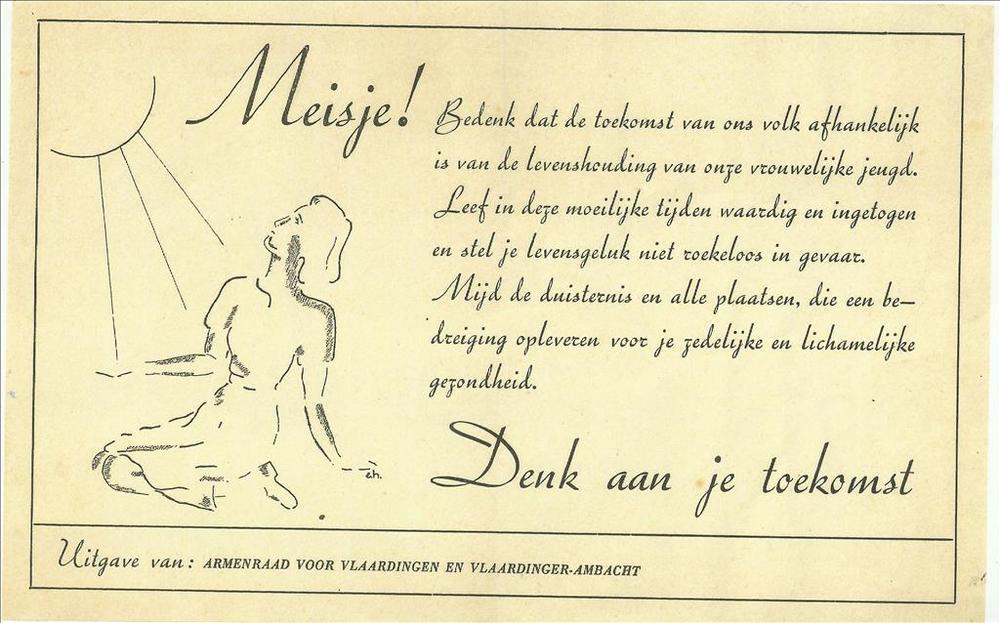 Meisje!
Bedenk dat de toekomst van ons volk afhankelijk
is van de levenshouding van onze vrouwelijke jeugd.
Leef in deze moeilijke tijden waardig en ingetogen
en stel je levensgeluk niet roekeloos in gevaar.
Mijd de duisternis en alle plaatsen, die een be-
dreiging opleveren voor je zedelijke en lichamelijke
gezondheid.
Denk aan je toekomst
e.h.
Uitgave van: ARMENRAAD VOOR VLAARDINGEN EN VLAARDINGER-AMBACHT